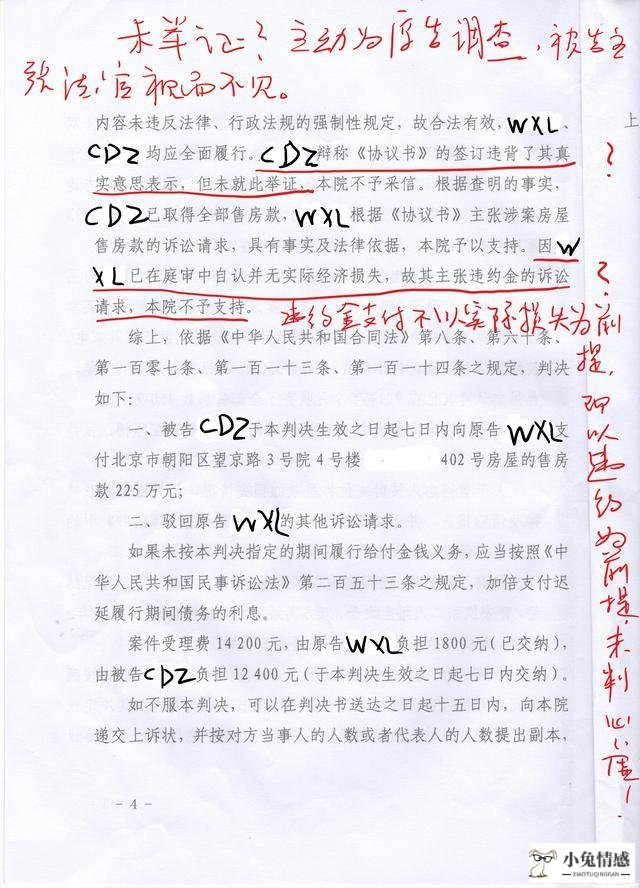 未举证？主动为原告调查，被告主
张法官视而不见。
内容未违反法律、行政法规的强制性规定，故合法有效，WXL、
CDZ均应全面履行。CDZ辩称《协议书》的签订违背了其真
实意思表示，但未就此举证，本院不予采信。根据查明的事实，
CDZ已取得全部售房款，WXL根据《协议书》主张涉案房屋
售房款的诉讼请求，具有事实及法律依据，本院予以支持。因W
XL已在庭审中自认并无实际经济损失，故其主张违约金的诉讼
请求，本院不予支持。
综上，依据《中华人民共和国合同法》第八条、第六十条、
第一百零七条、第一百一十三条、第一百一十四条之规定，判决
如下：
一、被告CDZ于本判决生效之日起七日内向原告WXL支
付北京市朝阳区望京路3号院4号楼 402号房屋的售房
款225万元；
二、驳回原告WXL的其他诉讼请求。
如果未按本判决指定的期间履行给付金钱义务，应当按照《中
华人民共和国民事诉讼法》第二百五十三条之规定，加倍支付迟
延履行期间债务的利息。
案件受理费14 200元，由原告WXL负担1800元（已交纳），
由被告CDZ负担12 400元（于本判决生效之日起七日内交纳）。
如不服本判决，可以在判决书送达之日起十五日内，向本院
递交上诉状，并按对方当事人的人数或者代表人的人数提出副本，
- 4 -
上
？
？
违约金支付不以实际损失为前
提，而以违约为前提，未判心虚！
小兔情感
XIAOTUQINGGAN